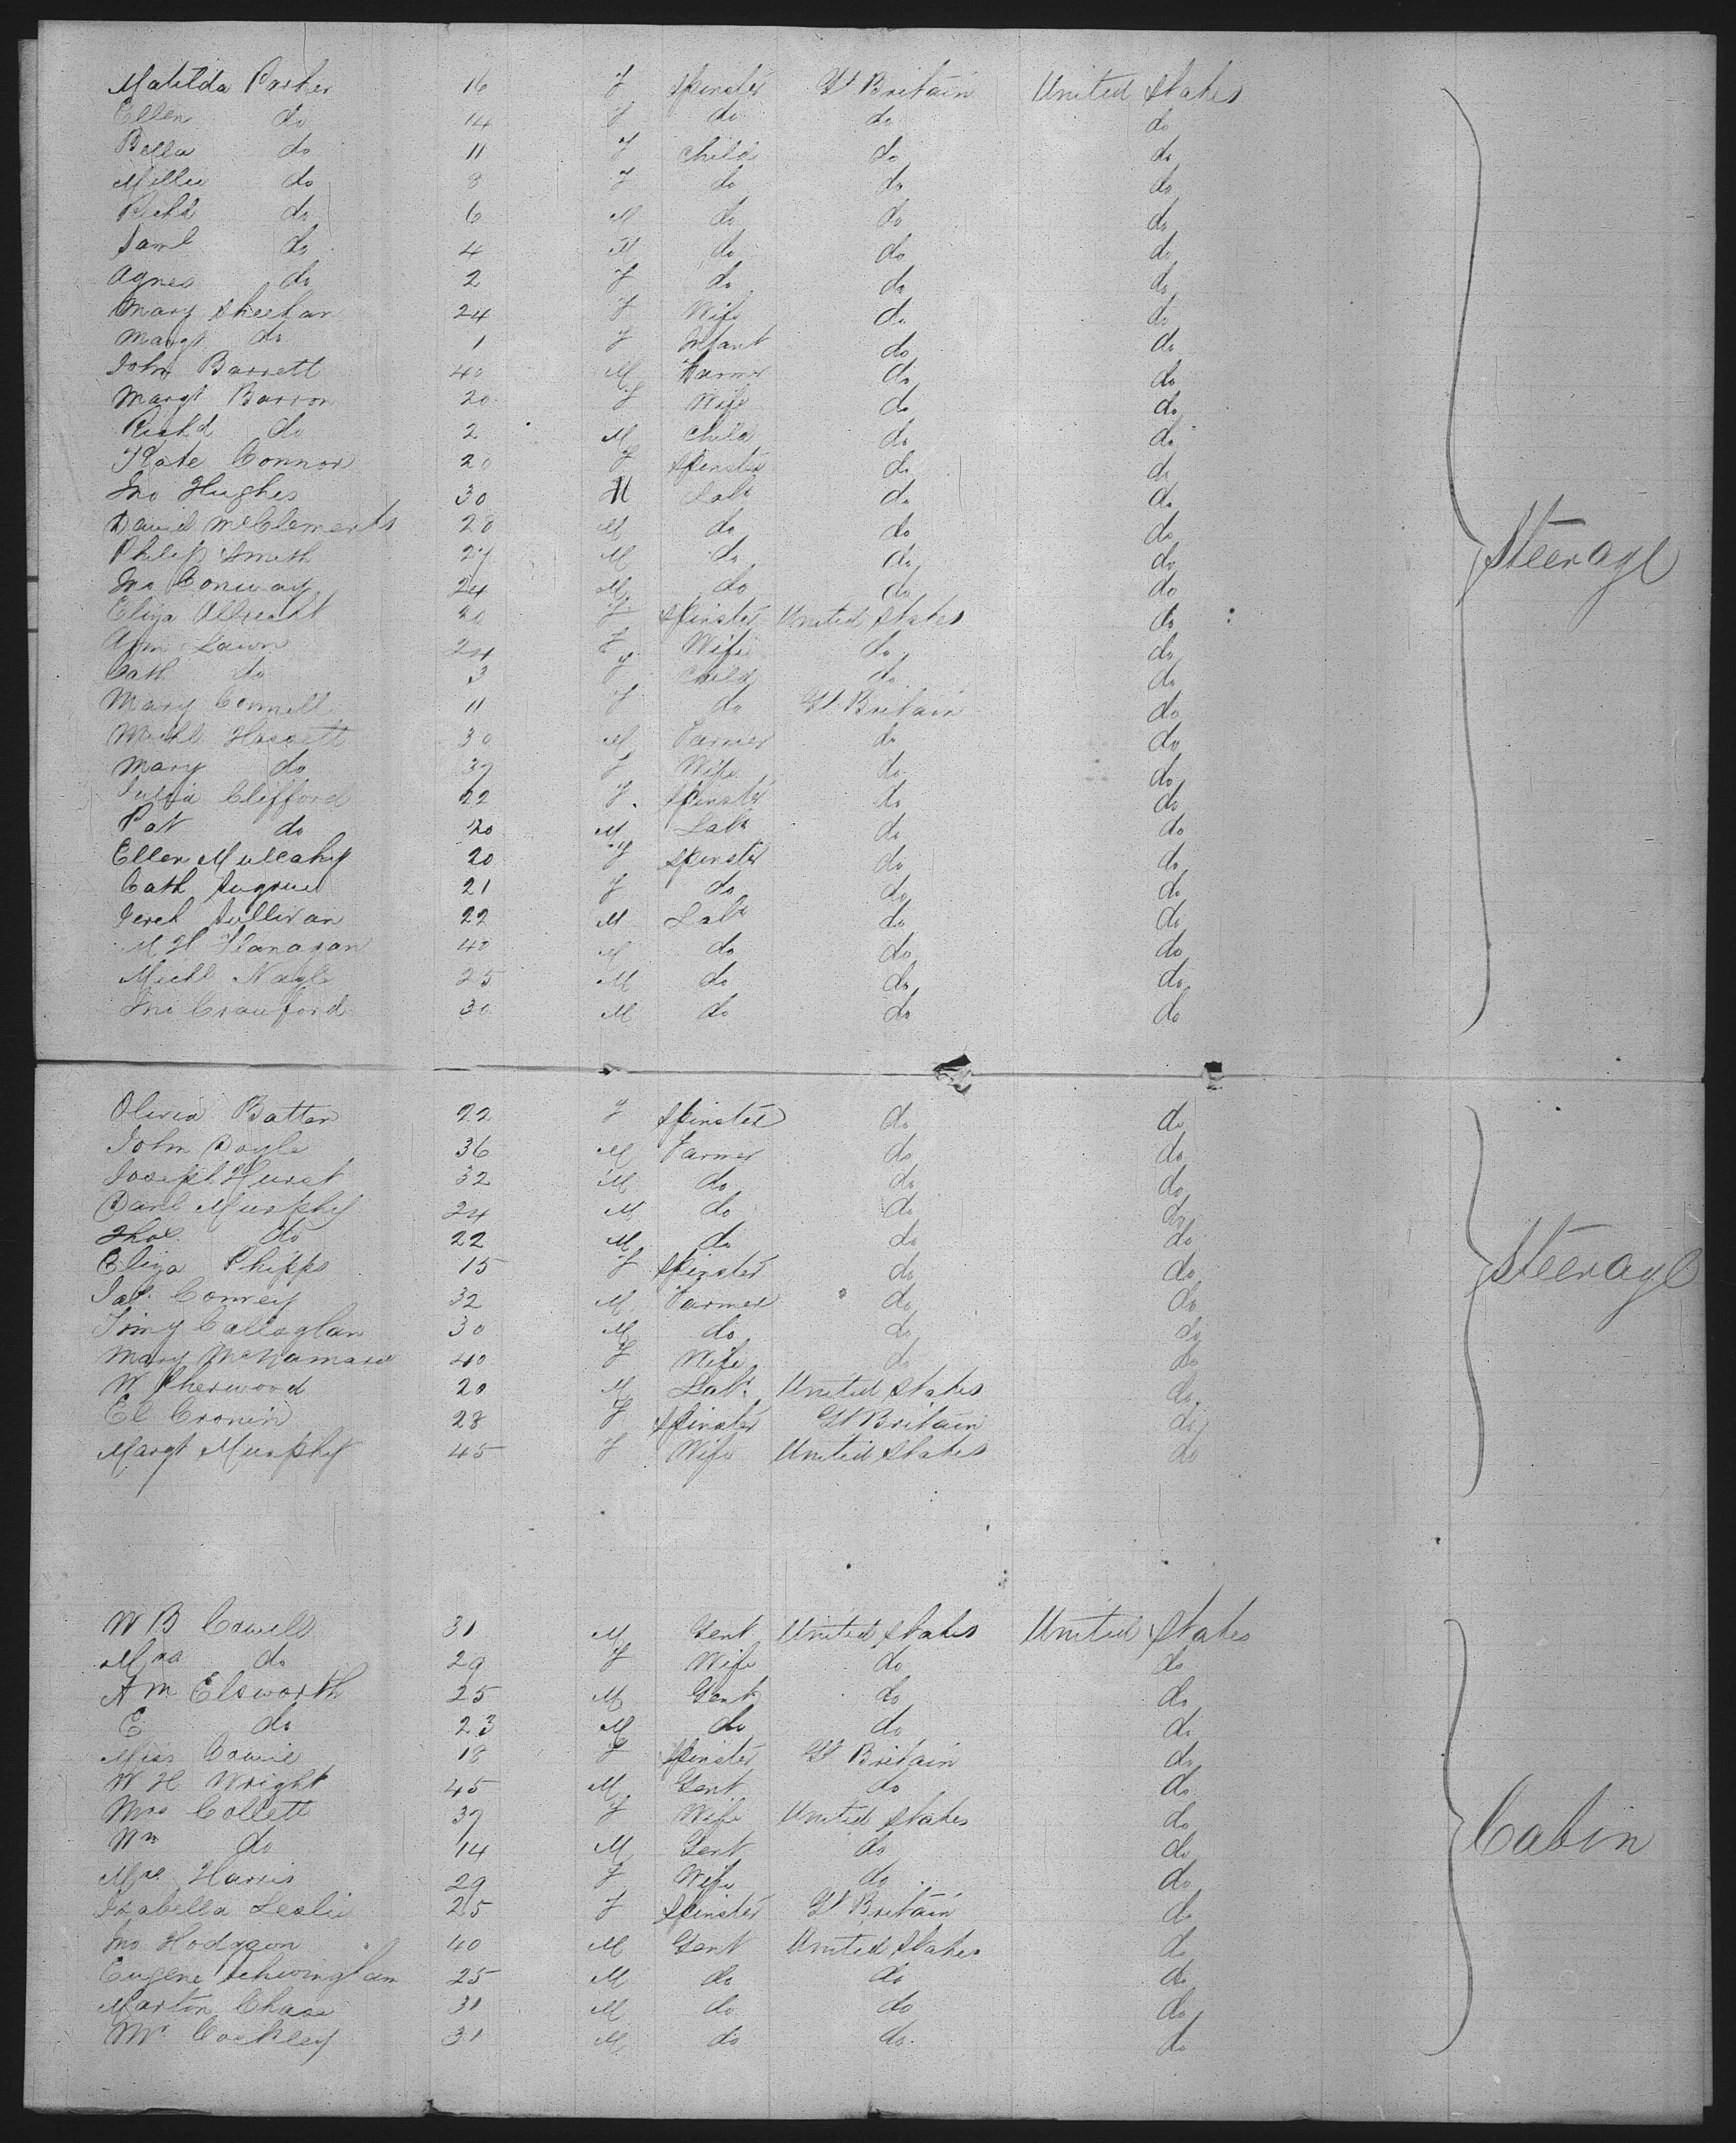 Matilda Parker 16 F Spinster Gt Britain United States
Ellen do 14 F do do do
Bella do 11 F Child do do
Millie do 8 F do do do
Richd do 6 M do do do
Saml do 4 M do do do
Agnes do 2 F do do do
Mary Sheehan 24 F Wife do do
Margt do 1 F Infant do do
John Barrett 40 M Farmer do do
Margt Barron 20 F Wife do do
Richd do 2 M Child do do
Kate Connor 20 F Spinster do do
Jno Hughes 30 M Labr do do
David McClements 20 M do do do
Philip Smith 27 M do do do
Jno Conway 24 M do do do
Eliza Albrecht 20 F Spinster United States do
Ann Lawn 24 F Wife do do
Cath do 3 F Child do do
Mary Connell 11 F do Gt Britain do
Michl Hassett 30 M Farmer do do
Mary do 37 F Wife do do
Julia Clifford 22 F Spinster do do
Pat do 20 M Labr do do
Ellen Mulcahy 20 F Spinster do do
Cath Sugrue 21 F do do do
Jereh Sullivan 22 M Labr do do
M H Flanagan 40 M do do do
Michl Nagle 25 M do do do
Jno Crawford 30 M do do do
Steerage
Olivia Batten 22 F Spinster do do
John Doyle 36 M Farmer do do
Joseph Hurst 32 M do do do
Danl Murphy 24 M do do do
Thos do 22 M do do do
Eliza Phipps 15 F Spinster do do
Jas. Conrey 32 M Farmer do do
Timy Callaghan 30 M do do do
Mary McNamara 40 F Wife do do
W Sherwood 20 M Labr United States do
El Cronin 28 F Spinster Gt Britain do
Margt Murphy 45 F Wife United States do
Steerage
W B Cowell 31 M Gent United States United States
Mrs do 29 F Wife do do
A M Elsworth 25 M Gent do do
E do 23 M do do do
Miss Cowie 18 F Spinster Gt Britain do
W H Wright 45 M Gent do do
Mrs Collett 37 F Wife United States do
Wm do 14 M Gent do do
Mrs Harris 29 F Wife do do
Isabella Leslie 25 F Spinster Gt Britain do
Jno Hodgson 40 M Gent United States do
Eugene Schwingham 25 M do do do
Marton Chase 31 M do do do
Mr Coakley 31 M do do do
Cabin